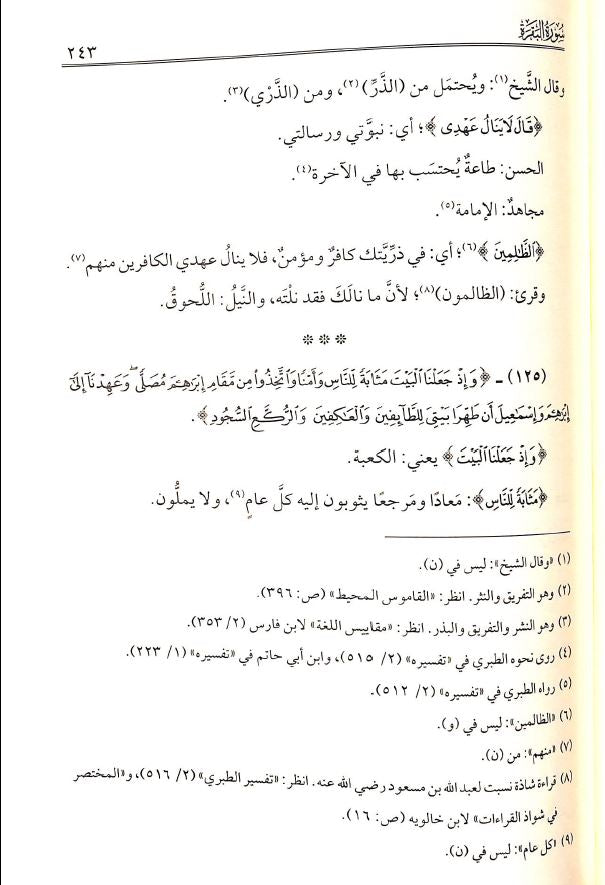 سُورَةُ البَقَرَةِ
٢٤٣
وقال الشَّيخ(١): ويُحتمَل من (الذَّرِّ)(٢)، ومن (الذَّرْي)(٣).
﴿قَالَ لَا يَنَالُ عَهْدِى﴾؛ أي: نبوَّتي ورسالتي.
الحسن: طاعةٌ يُحتسَب بها في الآخرة(٤).
مجاهدٌ: الإمامة(٥).
﴿الظَّالِمِينَ﴾(٦)؛ أي: في ذرِّيَّتك كافرٌ ومؤمنٌ، فلا ينالُ عهدي الكافرين منهم(٧).
وقرئ: (الظالمون)(٨)؛ لأنَّ ما نالَكَ فقد نلْتَه، والنَّيلُ: اللُّحوقُ.
* * *
(١٢٥) - ﴿وَإِذْ جَعَلْنَا الْبَيْتَ مَثَابَةً لِّلنَّاسِ وَأَمْنًا وَاتَّخِذُوا مِن مَّقَامِ إِبْرَاهِـۧمَ مُصَلًّى ۖ وَعَهِدْنَا إِلَىٰ
إِبْرَاهِـۧمَ وَإِسْمَاعِيلَ أَن طَهِّرَا بَيْتِيَ لِلطَّائِفِينَ وَالْعَاكِفِينَ وَالرُّكَّعِ السُّجُودِ﴾.
﴿وَإِذْ جَعَلْنَا الْبَيْتَ﴾ يعني: الكعبة.
﴿مَثَابَةً لِّلنَّاسِ﴾: مَعادًا ومَرجعًا يثوبون إليه كلَّ عامٍ(٩)، ولا يملُّون.
(١) «وقال الشيخ»: ليس في (ن).
(٢) وهو التفريق والنثر. انظر: «القاموس المحيط» (ص: ٣٩٦).
(٣) وهو النشر والتفريق والبذر. انظر: «مقاييس اللغة» لابن فارس (٢/ ٣٥٣).
(٤) روى نحوه الطبري في «تفسيره» (٢/ ٥١٥)، وابن أبي حاتم في «تفسيره» (١/ ٢٢٣).
(٥) رواه الطبري في «تفسيره» (٢/ ٥١٢).
(٦) «الظالمين»: ليس في (و).
(٧) «منهم»: من (ن).
(٨) قراءة شاذة نسبت لعبد الله بن مسعود رضي الله عنه. انظر: «تفسير الطبري» (٢/ ٥١٦)، و«المختصر
في شواذ القراءات» لابن خالويه (ص: ١٦).
(٩) «كل عام»: ليس في (ن).